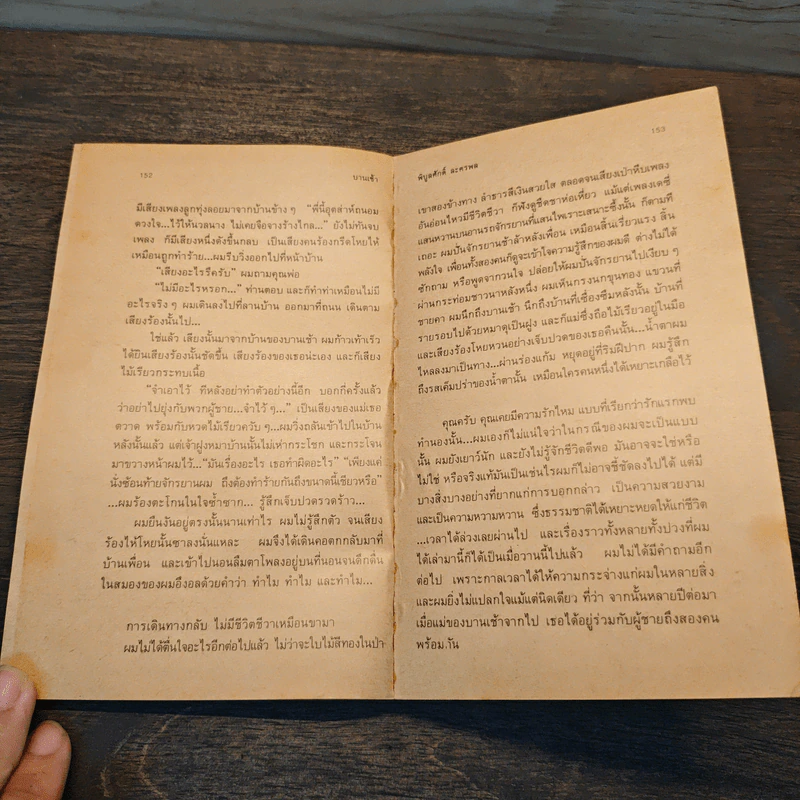 152
บานเช้า
มีเสียงเพลงลูกทุ่งลอยมาจากบ้านข้าง ๆ “พี่นี้อุตส่าห์ถนอม
ดวงใจ...ไว้ให้นวลนาง ไม่เคยจืดจางร้างไกล...” ยังไม่ทันจบ
เพลง ก็มีเสียงหนึ่งดังขึ้นกลบ เป็นเสียงคนร้องกรีดโหยให้
เหมือนถูกทำร้าย...ผมรีบวิ่งออกไปที่หน้าบ้าน
“เสียงอะไรรึครับ” ผมถามคุณพ่อ
“ไม่มีอะไรหรอก...” ท่านตอบ และก็ทำท่าเหมือนไม่มี
อะไรจริง ๆ ผมเดินลงไปที่ลานบ้าน ออกมาที่ถนน เดินตาม
เสียงร้องนั้นไป...
ใช่แล้ว เสียงนั้นมาจากบ้านของบานเช้า ผมก้าวเท้าเร็ว
ได้ยินเสียงร้องนั้นชัดขึ้น เสียงร้องของเธอน่ะเอง และก็เสียง
ไม้เรียวกระทบเนื้อ
“จำเอาไว้ ทีหลังอย่าทำตัวอย่างนี้อีก บอกกี่ครั้งแล้ว
ว่าอย่าไปยุ่งกับพวกผู้ชาย...จำไว้ ๆ...” เป็นเสียงของแม่เธอ
ตวาด พร้อมกับหวดไม้เรียวควับ ๆ...ผมวิ่งถลันเข้าไปในบ้าน
หลังนั้นแล้ว แต่เจ้าฝูงหมาบ้านนั้นไม่เห่ากระโชก และกระโจน
มาขวางหน้าผมไว้...“มันเรื่องอะไร เธอทำผิดอะไร” “เพียงแค่
นั่งซ้อนท้ายจักรยานผม ถึงต้องทำร้ายกันถึงขนาดนี้เชียวหรือ”
...ผมร้องตะโกนในใจซ้ำซาก... รู้สึกเจ็บปวดรวดร้าว...
ผมยืนงันอยู่ตรงนั้นนานเท่าไร ผมไม่รู้สึกตัว จนเสียง
ร้องไห้โหยนั้นซาลงนั่นแหละ ผมจึงได้เดินคอตกกลับมาที่
บ้านเพื่อน และเข้าไปนอนลืมตาโพลงอยู่บนที่นอนจนดึกดื่น
ในสมองของผมอึงอลด้วยคำว่า ทำไม ทำไม และทำไม...
การเดินทางกลับ ไม่มีชีวิตชีวาเหมือนขามา
ผมไม่ได้ตื่นใจอะไรอีกต่อไปแล้ว ไม่ว่าจะใบไม้สีทองในป่า
พิบูลศักดิ์ ละครพล
153
เขาสองข้างทาง ลำธารสีเงินสวยใส ตลอดจนเสียงเป่าหีบเพลง
อันอ่อนไหวมีชีวิตชีวา ก็ฟังดูซีดชาห่อเหี่ยว แม้แต่เพลงเดซี่
แสนหวานบนอานรถจักรยานที่แสนไพเราะเสนาะซึ้งนั้น ก็ตามที
เถอะ ผมปั่นจักรยานช้าล้าหลังเพื่อน เหมือนสิ้นเรี่ยวแรง สิ้น
พลังใจ เพื่อนทั้งสองคนก็ดูจะเข้าใจความรู้สึกของผมดี ต่างไม่ได้
ซักถาม หรือพูดจากวนใจ ปล่อยให้ผมปั่นจักรยานไปเงียบ ๆ
ผ่านกระท่อมชาวนาหลังหนึ่ง ผมเห็นกรงนกขุนทอง แขวนที่
ชายคา ผมนึกถึงบานเช้า นึกถึงบ้านที่เซื่องซึมหลังนั้น บ้านที่
รายรอบไปด้วยหมาดุเป็นฝูง และก็แม่ซึ่งถือไม้เรียวอยู่ในมือ
และเสียงร้องโหยหวนอย่างเจ็บปวดของเธอคืนนั้น...น้ำตาผม
ไหลลงมาเป็นทาง...ผ่านร่องแก้ม หยุดอยู่ที่ริมฝีปาก ผมรู้สึก
ถึงรสเค็มปร่าของน้ำตานั้น เหมือนใครคนหนึ่งได้เหยาะเกลือไว้
คุณครับ คุณเคยมีความรักไหม แบบที่เรียกว่ารักแรกพบ
ทำนองนั้น...ผมเองก็ไม่แน่ใจว่าในกรณีของผมจะเป็นแบบ
นั้น ผมยังเยาว์นัก และยังไม่รู้จักชีวิตดีพอ มันอาจจะใช่หรือ
ไม่ใช่ หรือจริงแท้มันเป็นเช่นไรผมก็ไม่อาจชี้ชัดลงไปได้ แต่มี
บางสิ่งบางอย่างที่ยากแก่การบอกกล่าว เป็นความสวยงาม
และเป็นความหวานหวาน ซึ่งธรรมชาติได้เหยาะหยดให้แก่ชีวิต
...เวลาได้ล่วงเลยผ่านไป และเรื่องราวทั้งหลายทั้งปวงที่ผม
ได้เล่ามานี้ก็ได้เป็นเมื่อวานนี้ไปแล้ว ผมไม่ได้มีคำถามอีก
ต่อไป เพราะกาลเวลาได้ให้ความกระจ่างแก่ผมในหลายสิ่ง
และผมยิ่งไม่แปลกใจแม้แต่นิดเดียว ที่ว่า จากนั้นหลายปีต่อมา
เมื่อแม่ของบานเช้าจากไป เธอได้อยู่ร่วมกับผู้ชายถึงสองคน
พร้อมกัน